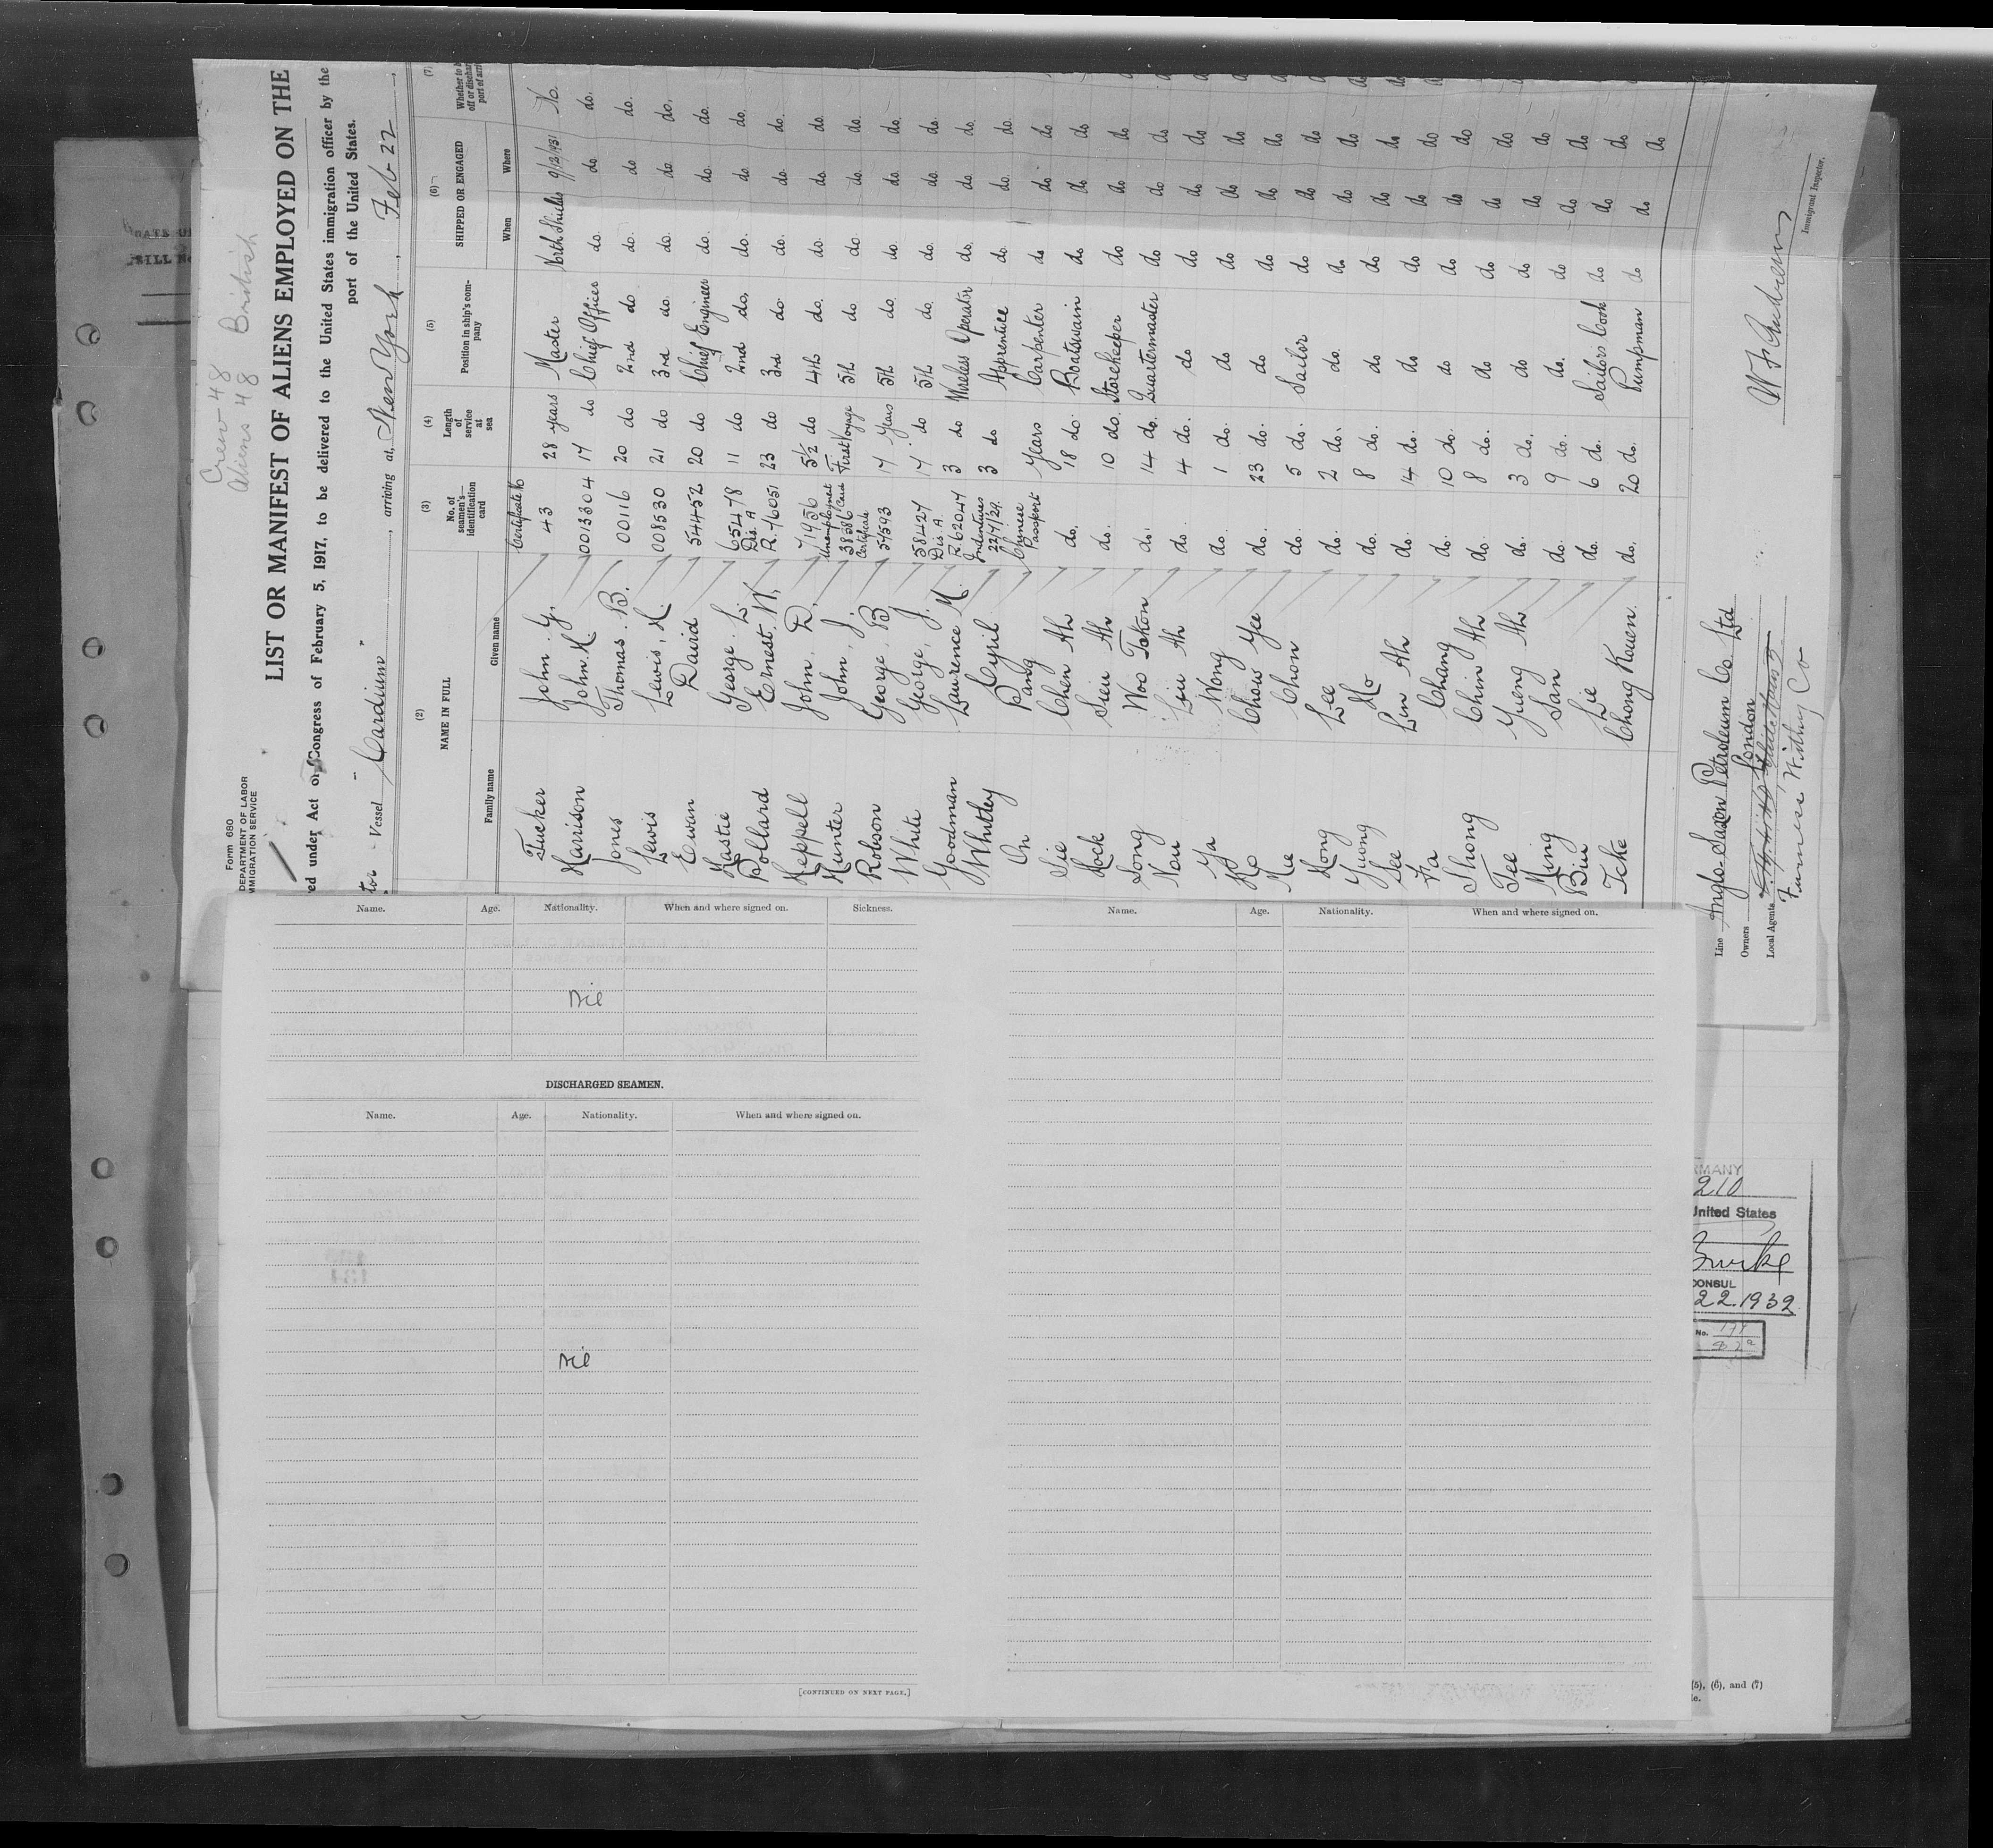 Crew 48 British
Aliens 48
Form 680
DEPARTMENT OF LABOR
IMMIGRATION SERVICE
LIST OR MANIFEST OF ALIENS EMPLOYED ON THE
ed under Act of Congress of February 5, 1917, to be delivered to the United States immigration officer by the
port of the United States.
tor Vessel Cardium, arriving at New York, Feb 22
(2) (3) (4) (5) (6) (7)
NAME IN FULL
Family name Given name
No. of seamen's identification card
Length of service at sea
Position in ship's company
SHIPPED OR ENGAGED
When Where
Certificate No
Tucker John G. 43 28 years Master North Shields 9/12/1931 No.
Harrison John H. 0013304 17 do Chief Officer do. do. do.
Jones Thomas B. 00116 20 do 2nd do do. do do.
Lewis Lewis, H. 008530 21 do 3rd do. do. do. do.
Ewan David 54452 20 do Chief Engineer do. do. do.
Hastie George L. 65478 11 do 2nd do. do. do. do.
Pollard Ernest W. Dis. A R.46051 23 do 3rd do do. do. do.
Heppell John D. 71956 5½ do 4th do. do. do. do.
Hunter John J. Unemployment 38386 Card First Voyage 5th do do. do. do.
Robson George B Certificate 54593 17 Years 5th do. do. do. do.
White George J. 58427 17 do 5th do. do. do. do.
Goodman Laurence M. Dis. A R.62047 3 do Wireless Operator do. do. do.
Whitley Cyril Indentures 22/7/29. 3 do Apprentice do. do. do.
On Pang Chinese Passport Years Carpenter do do. do
Sie Chen Ah do. 18 do. Boatswain do do do
Hock Sieu Ah do. 10 do. Storekeeper do do do
Song Woo Tokon do. 14 do. Quartermaster do do do
Nou Liu Ah do. 4 do. do do do do
Ya Wong do. 1 do. do do do do
Ho Chow Yee do. 23 do. do do do do
Mee Chon do. 5 do. Sailor do do do
Hong Lee do. 2 do. do. do do do
Yuong Ho do. 8 do. do do do do
See Lin Ah do. 14 do. do do do do
Fa Chang do. 10 do. do do do do
Shong Chin Ah do. 8 do. do do do do
Tee Yueng Ah do. 3 do. do do do do
Ming San do. 9 do. do. do do do
Biu Lie do. 6 do. Sailors Cook do do do
Tcke Chong Kuen. do. 20 do. Pumpman do do do
Line Anglo-Saxon Petroleum Co Ltd
Owners London
Local Agents
Furness, Withy Co
Immigrant Inspector.
Name. Age. Nationality. When and where signed on. Sickness.
Nil
DISCHARGED SEAMEN.
Name. Age. Nationality. When and where signed on.
Nil
[CONTINUED ON NEXT PAGE.]
Name. Age. Nationality. When and where signed on.
RMANY
210
United States
Burke
CONSUL
22.1932
No.
(5), (6), and (7)
le.